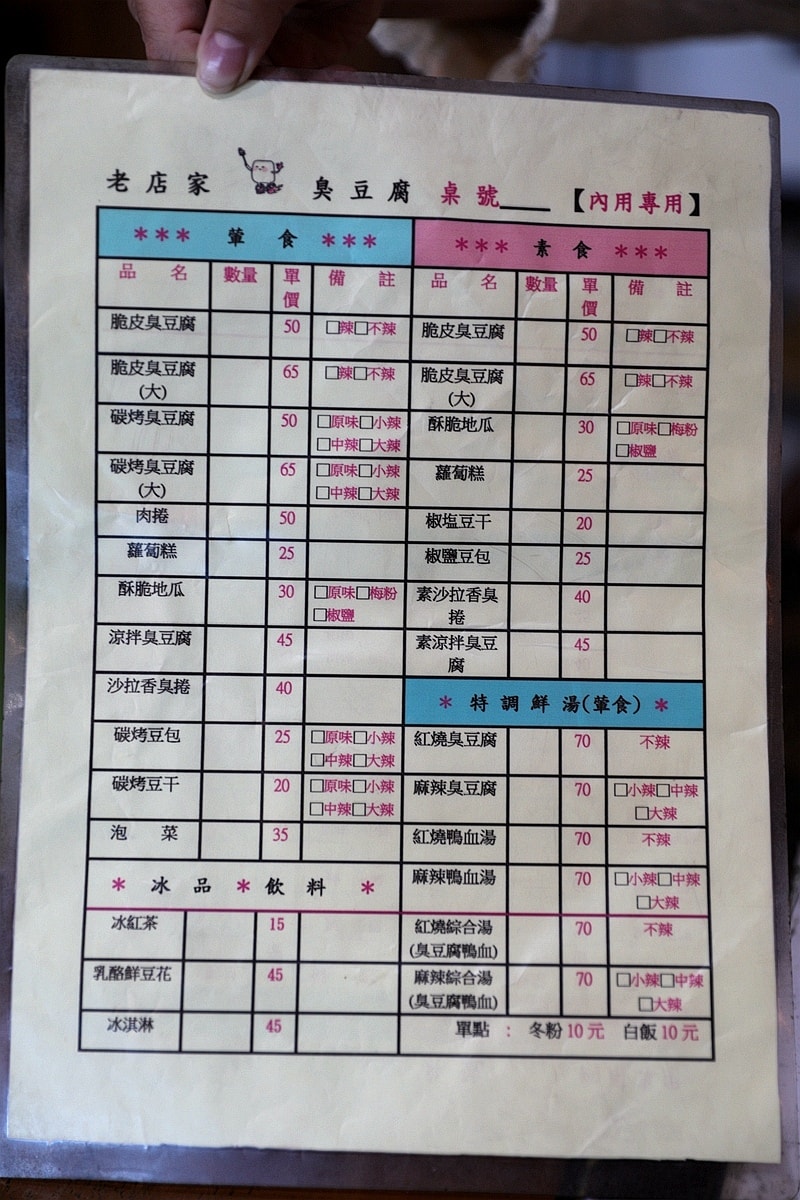 老店家 臭豆腐 桌號____ 【內用專用】
*** 葷食 ***
品名 數量 單價 備註
脆皮臭豆腐 50 □辣□不辣
脆皮臭豆腐(大) 65 □辣□不辣
碳烤臭豆腐 50 □原味□小辣□中辣□大辣
碳烤臭豆腐(大) 65 □原味□小辣□中辣□大辣
肉捲 50
蘿蔔糕 25
酥脆地瓜 30 □原味□梅粉□椒鹽
涼拌臭豆腐 45
沙拉香臭捲 40
碳烤豆包 25 □原味□小辣□中辣□大辣
碳烤豆干 20 □原味□小辣□中辣□大辣
泡菜 35
* 冰品 * 飲料 *
冰紅茶 15
乳酪鮮豆花 45
冰淇淋 45
*** 素食 ***
品名 數量 單價 備註
脆皮臭豆腐 50 □辣□不辣
脆皮臭豆腐(大) 65 □辣□不辣
酥脆地瓜 30 □原味□梅粉□椒鹽
蘿蔔糕 25
椒塩豆干 20
椒鹽豆包 25
素沙拉香臭捲 40
素涼拌臭豆腐 45
* 特調鮮湯(葷食) *
紅燒臭豆腐 70 不辣
麻辣臭豆腐 70 □小辣□中辣□大辣
紅燒鴨血湯 70 不辣
麻辣鴨血湯 70 □小辣□中辣□大辣
紅燒綜合湯(臭豆腐鴨血) 70 不辣
麻辣綜合湯(臭豆腐鴨血) 70 □小辣□中辣□大辣
單點 : 冬粉10元 白飯10元